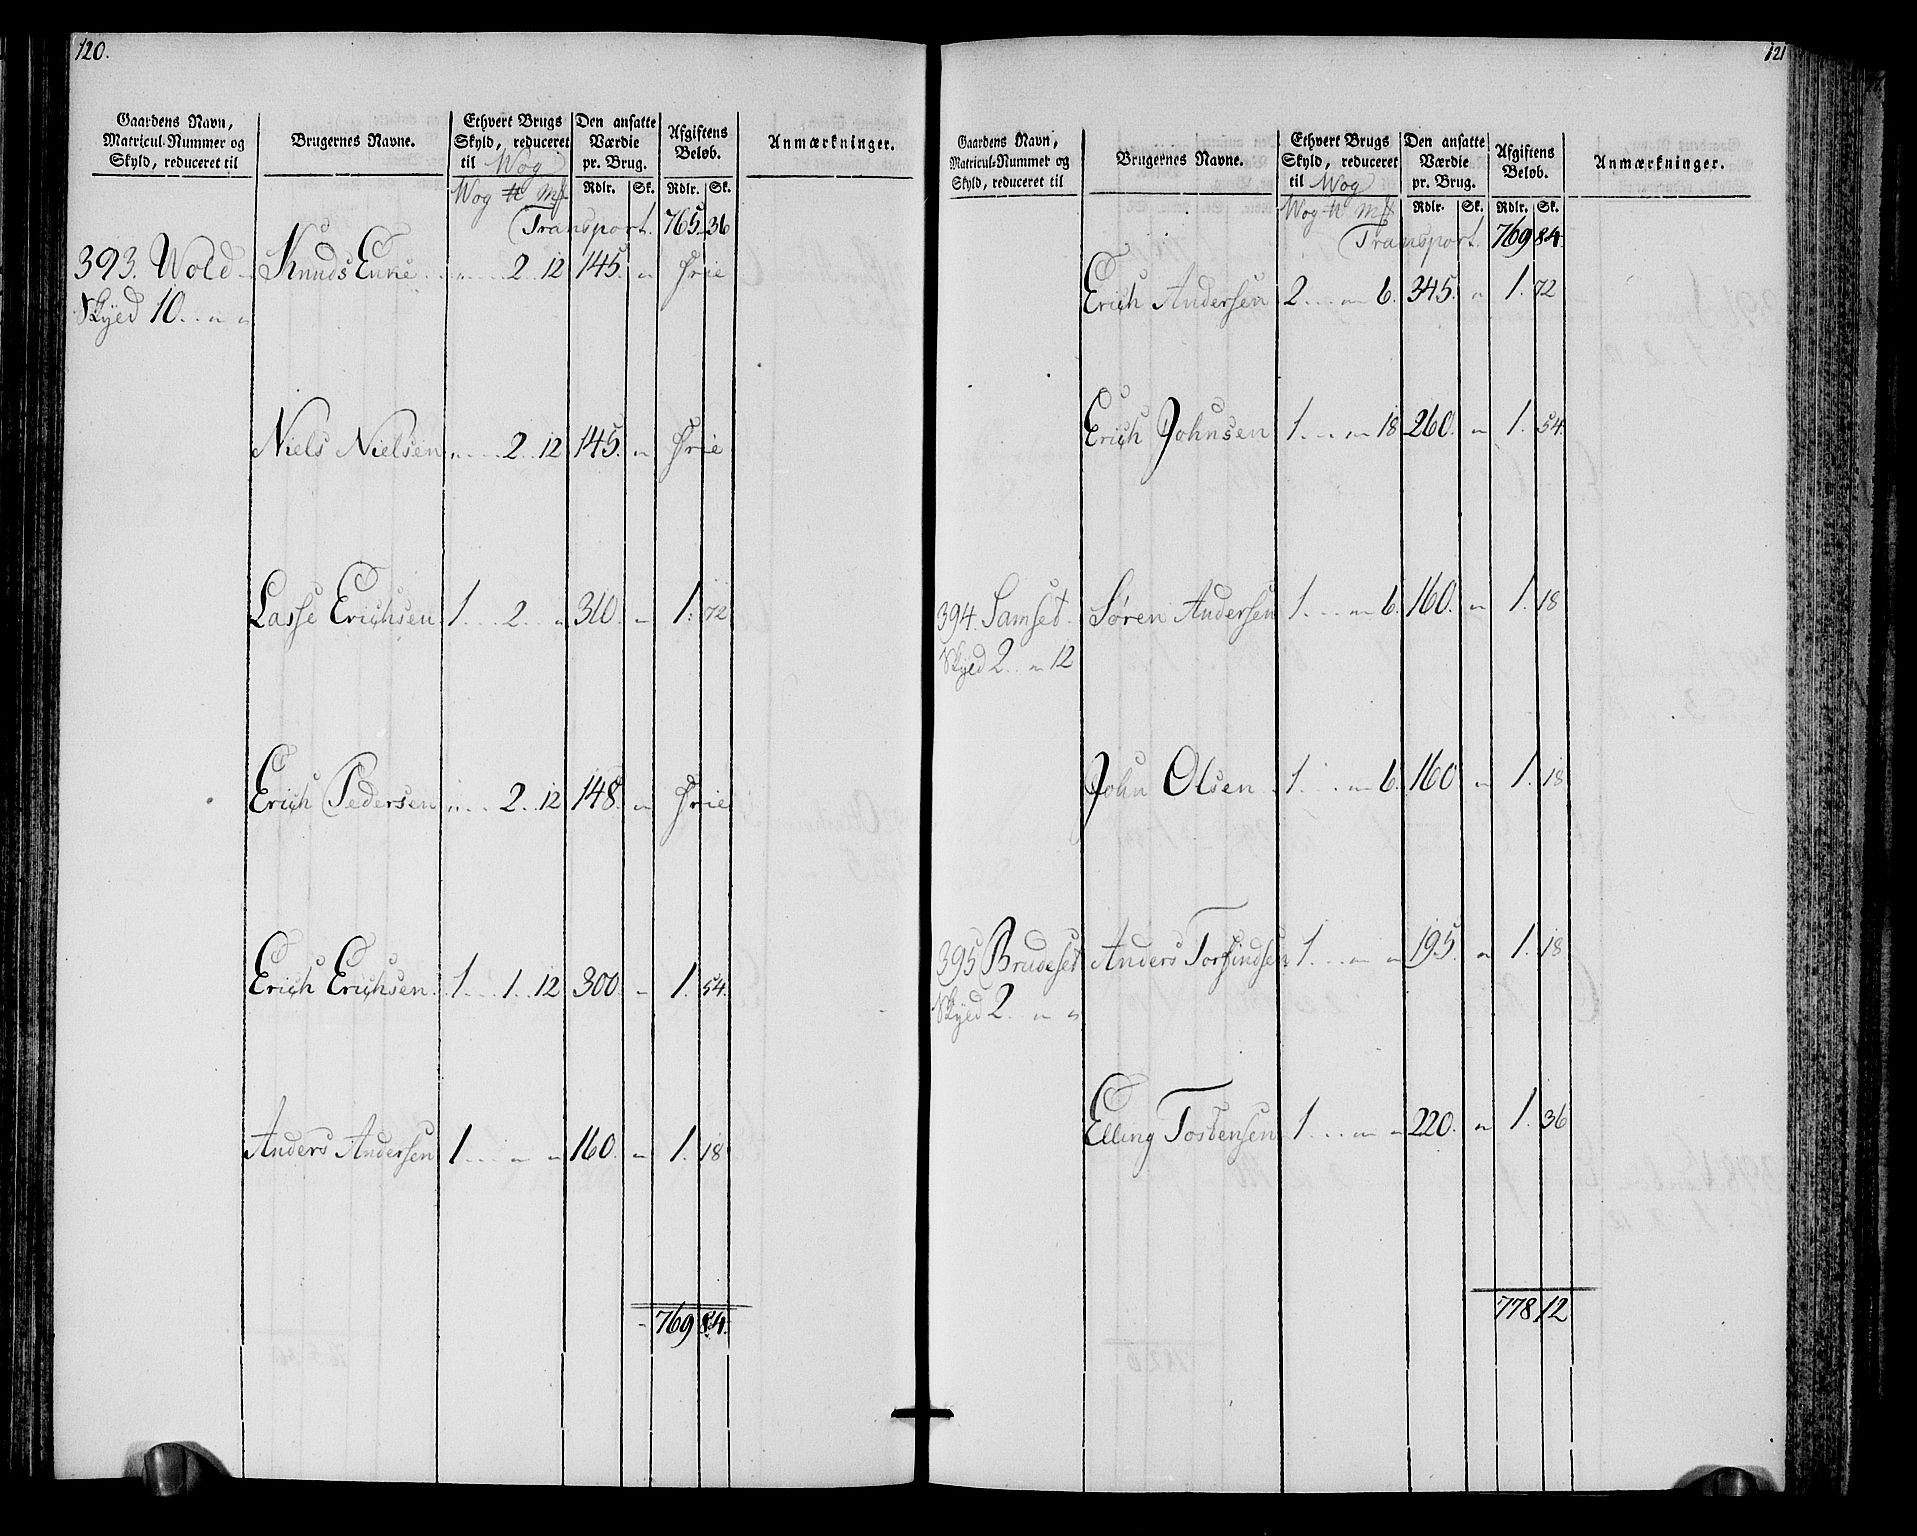 120.
Gaardens Navn, Matricul-Nummer og Skyld, reduceret til
Brugernes Navne.
Ethvert Brugs Skyld, reduceret til Wog
Den ansatte Værdie pr. Brug.
Afgiftens Beløb.
Anmærkninger.
Wog ℔ Mk Rdlr. Sk. Rdlr. Sk.
Transport. 765. 36
393. Wold Knuds Enke „ 2. 12 145. „ Frie
Skyld 10. „ „
Niels Nielsen „ 2. 12 145. „ Frie
Lasse Erichsen 1. 2. „ 310. „ 1. 72
Erich Pedersen „ 2. 12 148. „ Frie
Erich Erichsen 1. 1. 12 300. „ 1. 54.
Anders Andersen 1. „ „ 160. „ 1. 18
769 84.
121
Gaardens Navn, Matricul-Nummer og Skyld, reduceret til
Brugernes Navne.
Ethvert Brugs Skyld, reduceret til Wog
Den ansatte Værdie pr. Brug.
Afgiftens Beløb.
Anmærkninger.
Wog ℔ Mk Rdlr. Sk. Rdlr. Sk.
Transport. 769 84
Erich Andersen 2. „ 6. 345. „ 1. 72
Erich Johnsen 1. „ 18 260. „ 1. 54.
394. Samset. Søren Andersen 1. „ 6. 160. „ 1. 18
Skyld 2. „ 12
John Olsen 1. „ 6. 160 „ 1. 18
395 Brudeset Anders Torfindsen 1. „ „ 195. „ 1. 18
Skyld 2. „ „
Elling Tostensen 1. „ „ 220. „ 1. 36
778 12